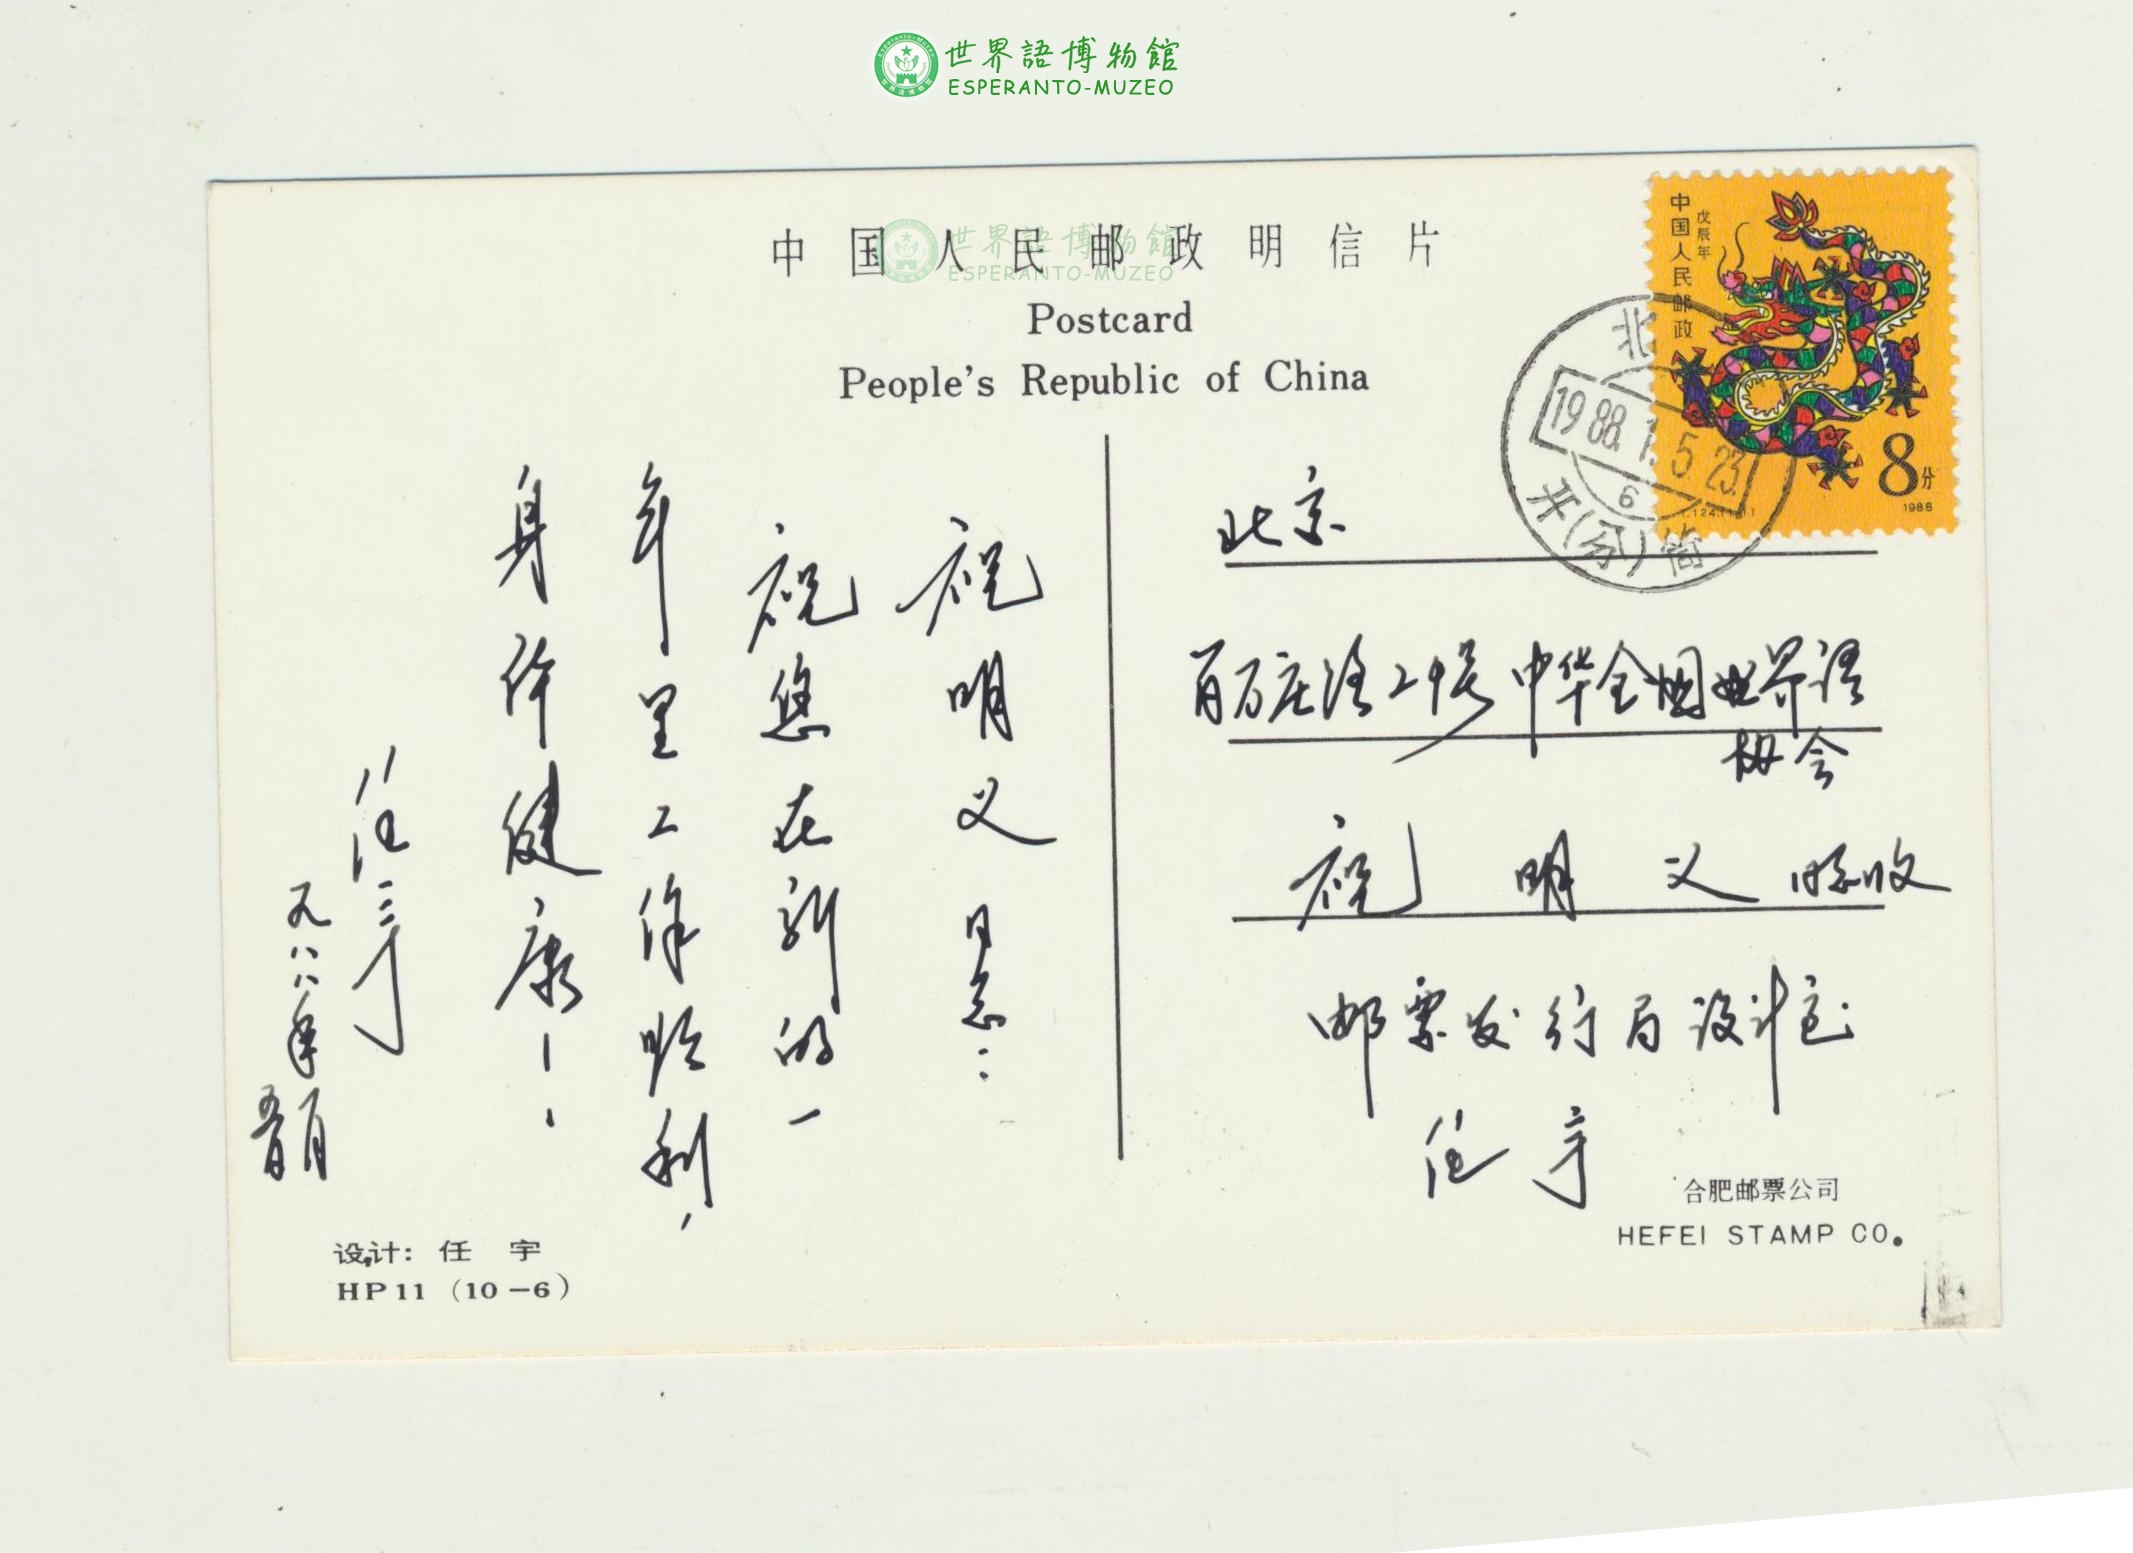 世界語博物館
ESPERANTO-MUZEO
中国人民邮政明信片
世界語博物館
ESPERANTO-MUZEO
Postcard
People's Republic of China
中国人民邮政
戊辰年
8分
1988
北
1988.1.5.23
6
祝明义同志:
祝您在新的一
年里工作顺利,
身体健康!
任宇
一九八八年
元月五日
北京
百万庄路24号 中华全国世界语
协会
祝明义 同志收
邮票发行局设计室
任宇
合肥邮票公司
HEFEI STAMP CO.
设计: 任 宇
HP11 (10-6)